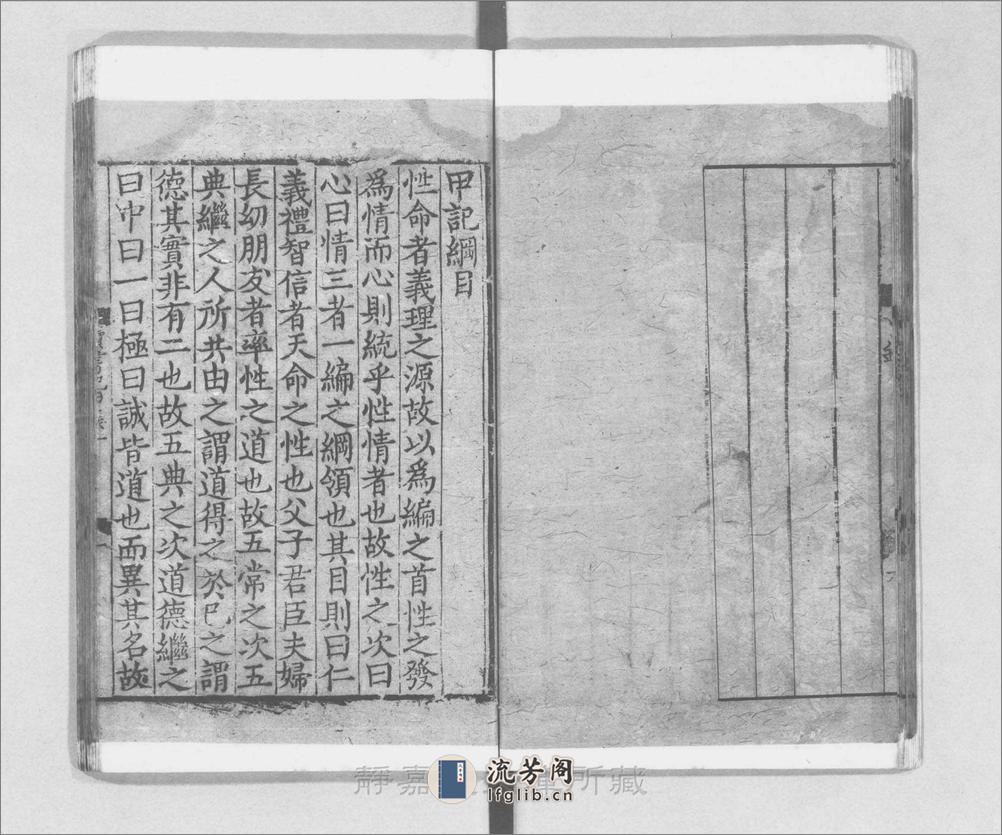 甲記綱目
性命者義理之源故以爲編之首性之發
爲情而心則統乎性情者也故性之次曰
心曰情三者一編之綱領也其目則曰仁
義禮智信者天命之性也父子君臣夫婦
長幼朋友者率性之道也故五常之次五
典繼之人所共由之謂道得之於己之謂
德其實非有二也故五典之次道德繼之
曰中曰一曰極曰誠皆道也而異其名故
靜嘉 所藏
流芳阁
lfglib.cn